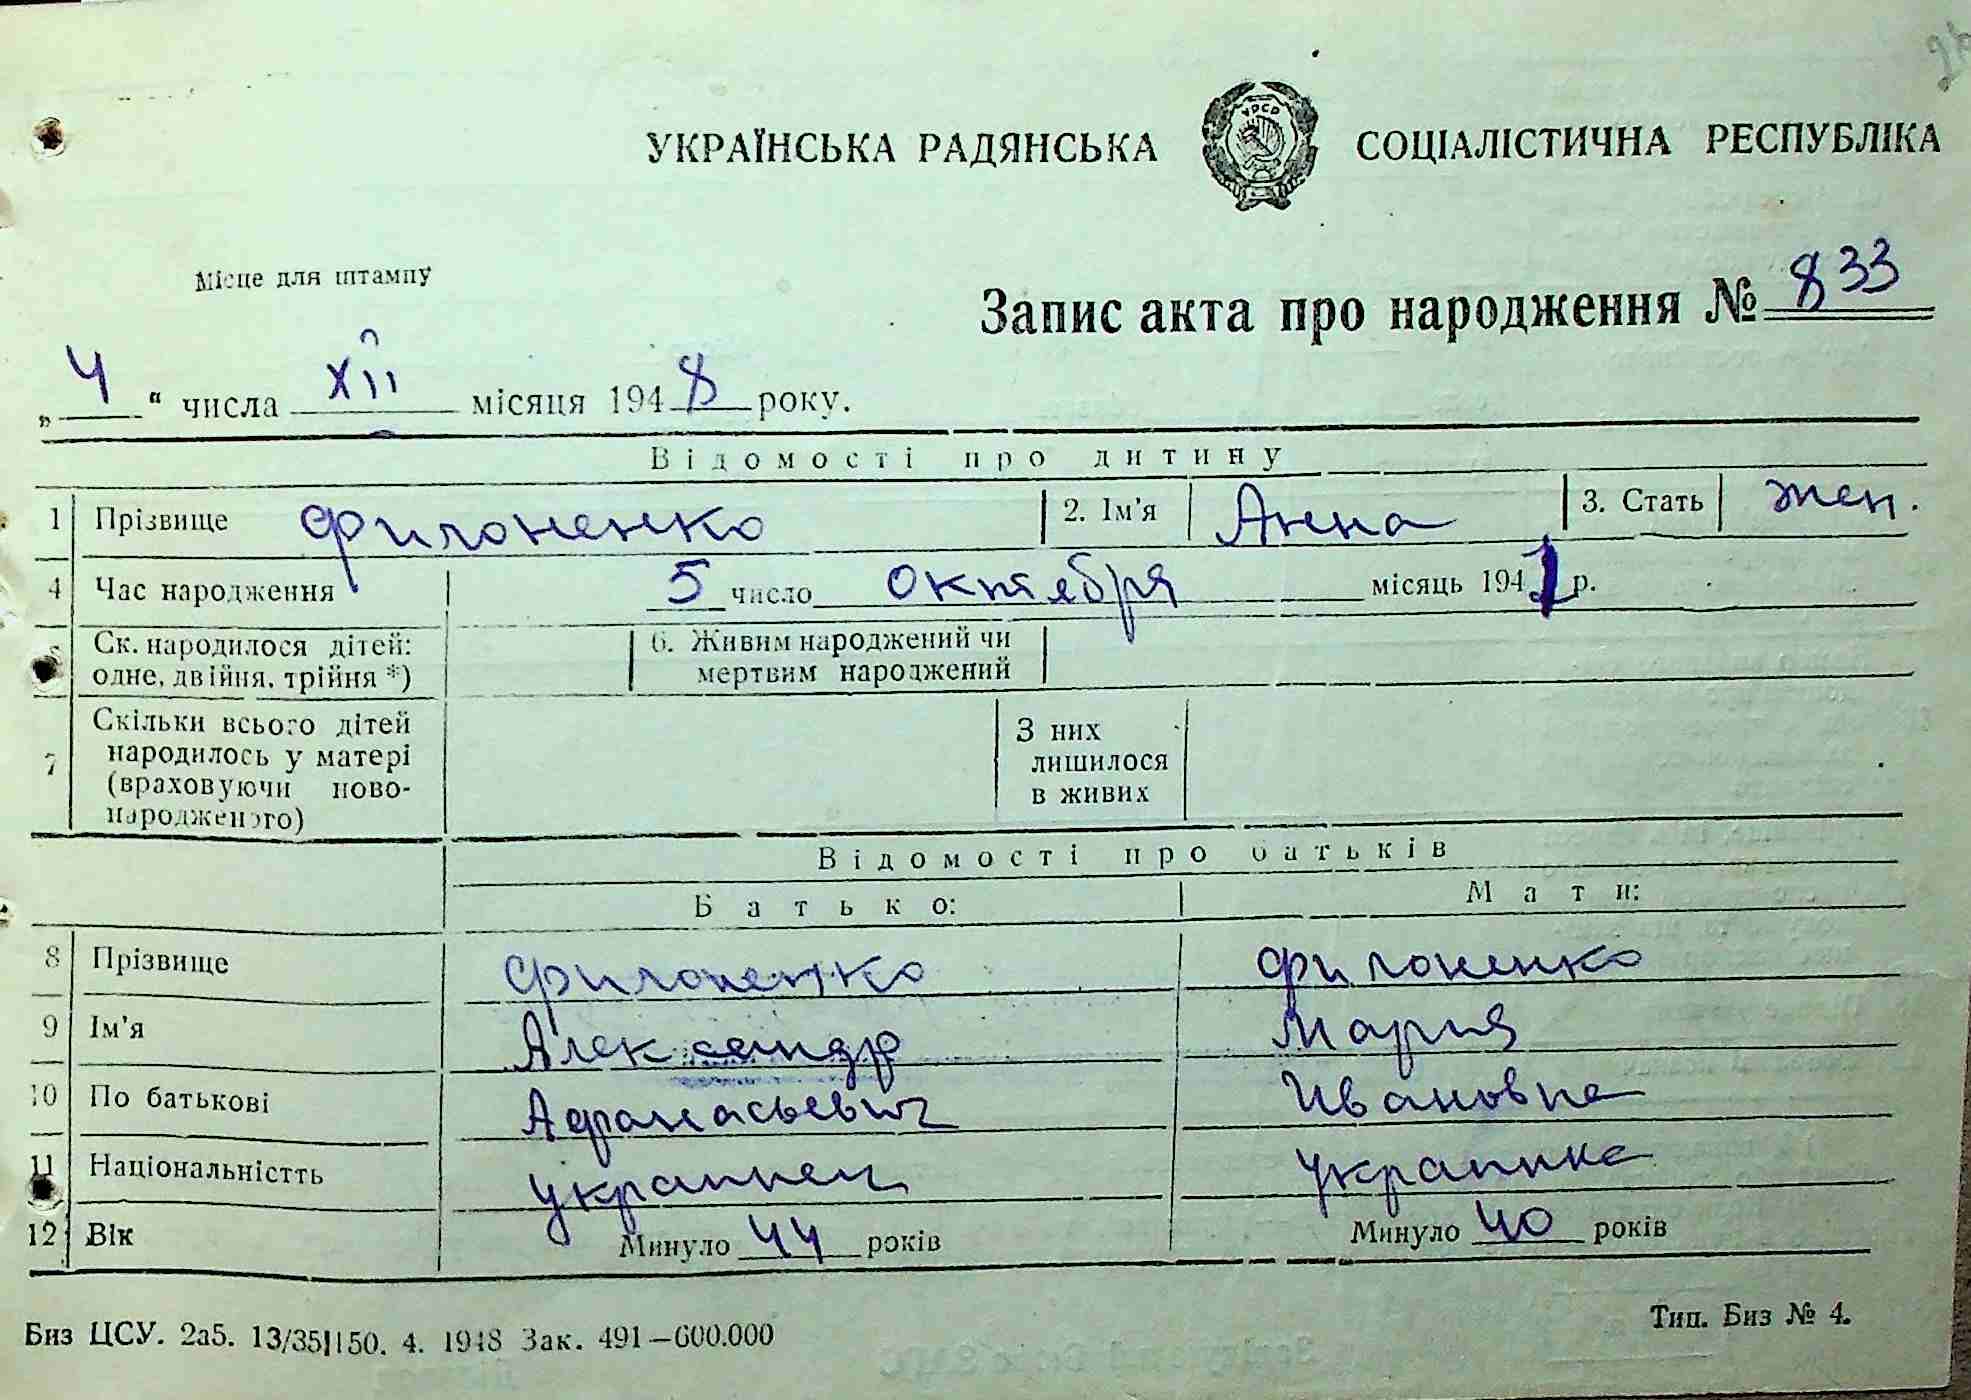 24
УКРАЇНСЬКА РАДЯНСЬКА УРСР СОЦІАЛІСТИЧНА РЕСПУБЛІКА
Місце для штампу
Запис акта про народження № 833
„ 4 “ числа XII місяця 1948 року.
Відомості про дитину
1 Прізвище Филоненко 2. Ім'я Анна 3. Стать жен.
4 Час народження 5 число октября місяць 1941 р.
5 Ск. народилося дітей: 6. Живим народжений чи
одне, двійня, трійня *) мертвим народжений
Скільки всього дітей З них
7 народилось у матері лишилося
(враховуючи ново- в живих
народженого)
Відомості про батьків
Батько: Мати:
8 Прізвище Филоненко Филоненко
9 Ім'я Александр Мария
10 По батькові Афанасьевич Ивановна
11 Національністть украинец украинка
12 Вік Минуло 44 років Минуло 40 років
Биз ЦСУ. 2а5. 13/35|150. 4. 1948 Зак. 491—600.000 Тип. Биз № 4.